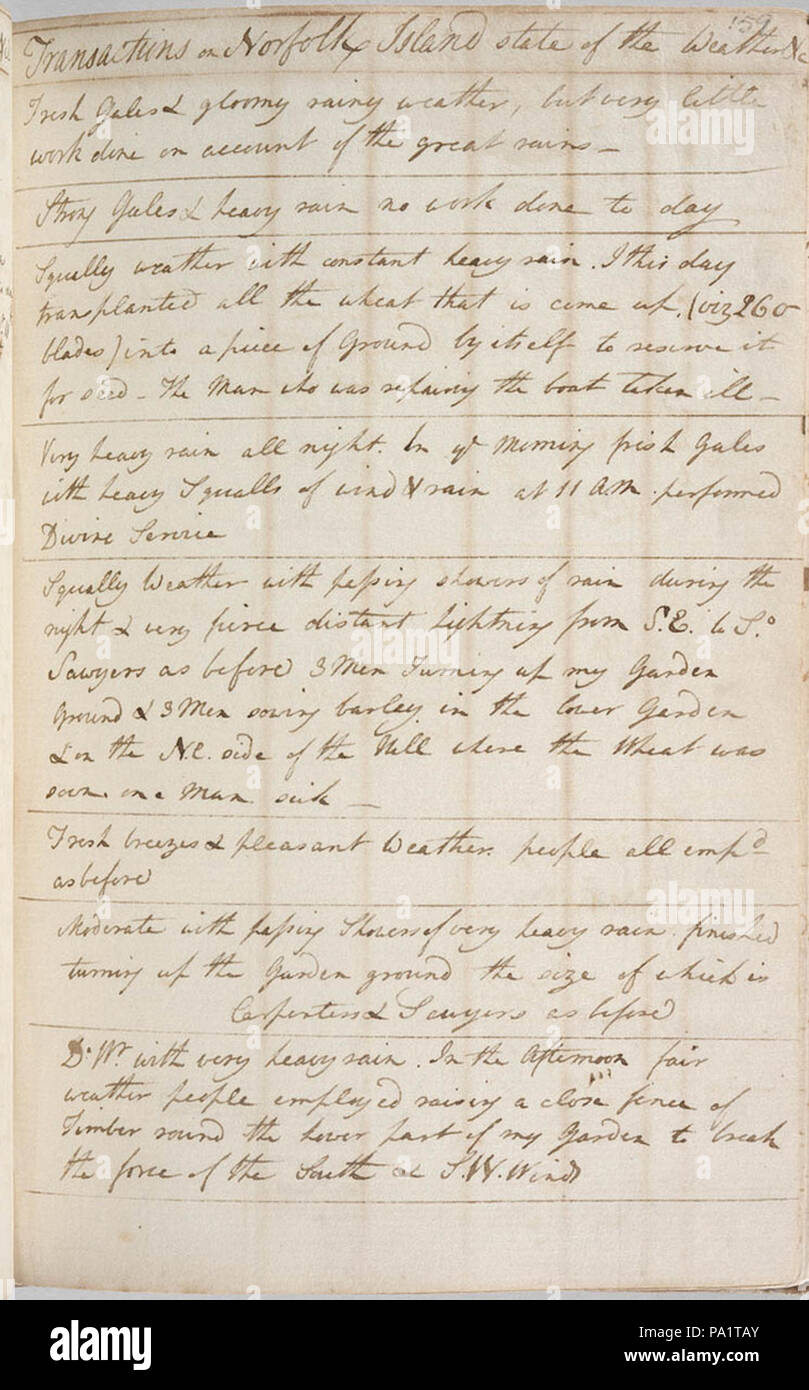 159
Transactions on Norfolk Island state of the Weather &c
Fresh Gales & gloomy rainy weather, but very little
work done on account of the great rains –
Strong Gales & heavy rain no work done to day
Squally weather with constant heavy rain. I this day
transplanted all the wheat that is come up, (viz 260
blades) into a piece of Ground by itself to reserve it
for seed – The Man who was repairing the boat taken ill –
Very heavy rain all night. In ye Morning fresh Gales
with heavy Squalls of wind & rain at 11 AM. performed
Divine Service
Squally Weather with passing showers of rain during the
night & very fierce distant lightning from S.E. to So
Sawyers as before 3 Men Turning up my Garden
Ground & 3 Men sowing barley in the lower Garden
& on the N.E. side of the Hill where the Wheat was
sown. one Man sick –
Fresh breezes & pleasant Weather. people all empd
as before
Moderate with passing Showers of very heavy rain. finished
turning up the Garden ground the size of which is
Carpenters & Sawyers as before
Do Wr with very heavy rain. In the Afternoon fair
weather people employed raising a close fence of
Timber round the lower part of my Garden to break
the force of the South & S.W. Winds
alamy
alamy
Image ID: PA1TAY
www.alamy.com